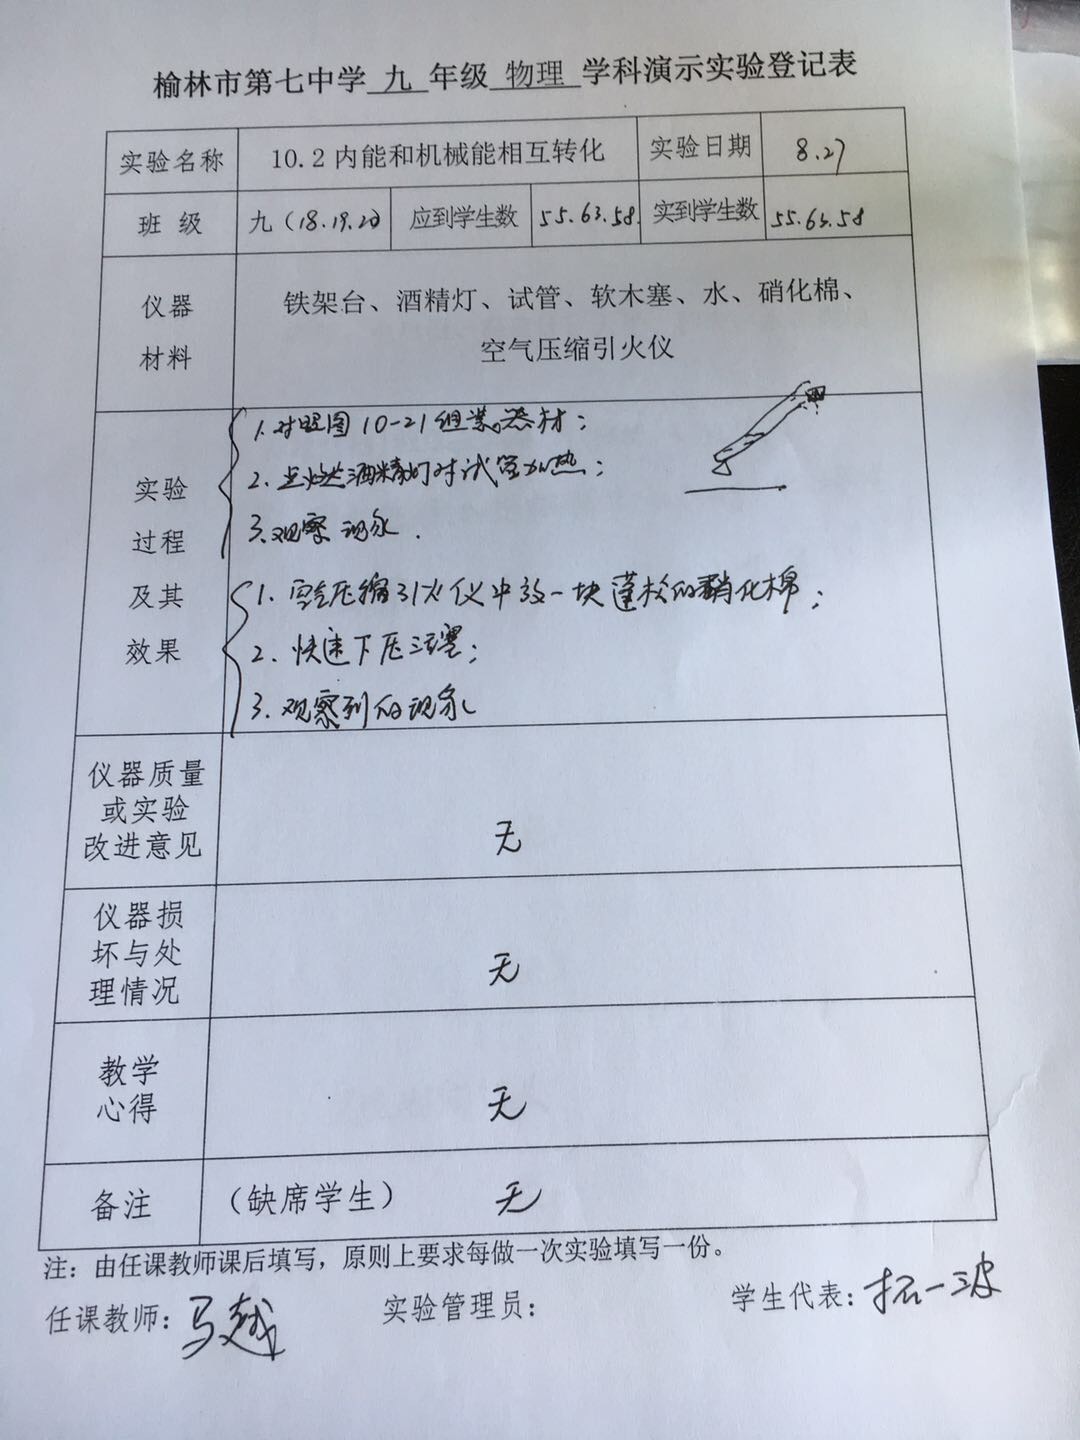 榆林市第七中学 九 年级 物理 学科演示实验登记表
实验名称 10.2内能和机械能相互转化 实验日期 8.27
班 级 九(18.19.20 应到学生数 55.63.58. 实到学生数 55.63.58
仪器
材料
铁架台、酒精灯、试管、软木塞、水、硝化棉、
空气压缩引火仪
实验
过程
及其
效果
1.对照图10-21组装器材;
2.点燃酒精灯对试管加热;
3.观察现象.
1.空气压缩引火仪中放一块蓬松的硝化棉;
2.快速下压活塞;
3.观察到的现象
仪器质量
或实验
改进意见
无
仪器损
坏与处
理情况
无
教学
心得
无
备注 (缺席学生) 无
注:由任课教师课后填写,原则上要求每做一次实验填写一份。
任课教师:马越 实验管理员: 学生代表:拓一波